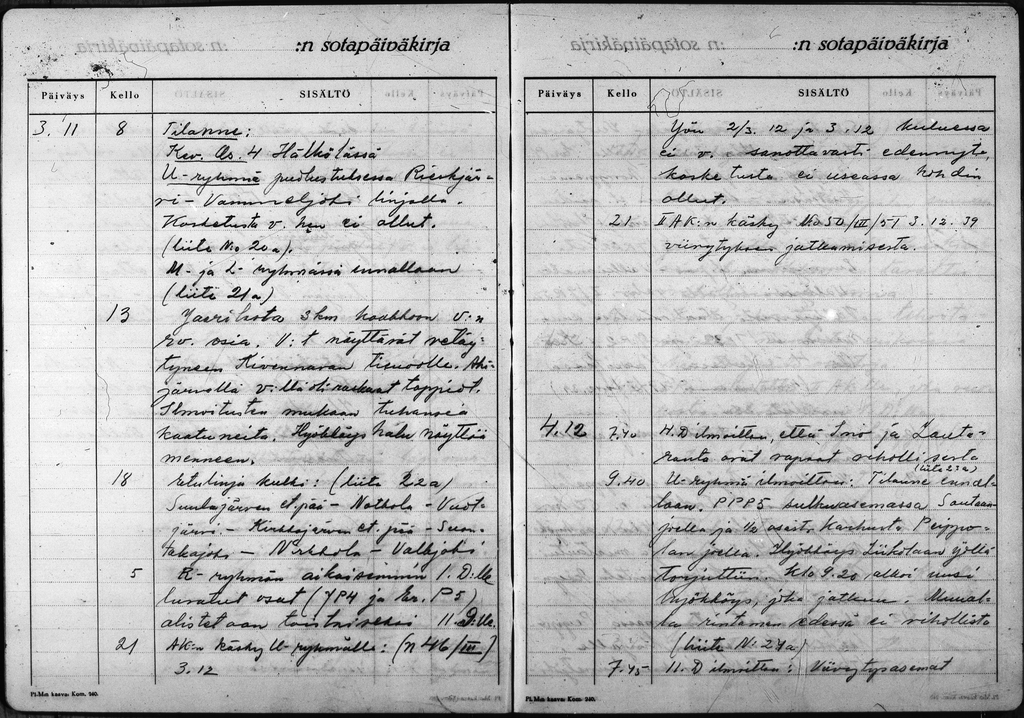 :n sotapäiväkirja
Päiväys Kello SISÄLTÖ
3. 11 8 Tilanne:
Kev. Os. 4 Hälkölässä
U-ryhmä puolustuksessa
- Vammeljoki linjalla.
Kosketusta v. ei ollut.
(liite No 20a).
M- ja L- ryhmässä ennallaan
(liite 21a)
13 3 km kaakkoon v:n
ev. osia. V:t näyttävät vetäy-
tyneen Kivennavan tienoolle.
järvellä v:llä oli raskaat tappiot.
Ilmoitusten mukaan tuhansia
kaatuneita. Hyökkäys halu näyttää
menneen.
18 Etulinja kulki: (liite 22a)
Suulajärven et. pää -
järvi - Kirkkojärven et. pää -
- - Valkjoki
5 R-ryhmän aikaisemmin 1. D:lle
luvatut osat (JP4 ja Er. P5)
alistetaan toistaiseksi 11. D:lle.
21 AK:n käsky U-ryhmälle: (n 46/III)
3.12
Pl.M:n kaava: Kom. 240.
:n sotapäiväkirja
Päiväys Kello SISÄLTÖ
Yön 2/3. 12 ja 3. 12 kuluessa
ei v. sanottavasti edennyt,
kosketusta ei useassa kohdin
ollut.
21 II AK:n käsky No 50/III/51 3.12.39
viivytyksen jatkamisesta.
4.12 7.40 4. D ilmoittaa, että Ino ja Lauta-
ranta ovat vapaat vihollisesta
(liite 23a)
9.40 U-ryhmä ilmoittaa: Tilanne ennal-
laan. PPP5 sulkuasemassa
joella ja osasto
joella. Hyökkäys yöllä
torjuttiin. Klo 9.20 alkoi uusi
hyökkäys, joka jatkuu. Muual-
la rintaman edessä ei vihollista
(liite No: 24a)
7.45 11. D ilmoittaa: Viivytysasemat
Pl.M:n kaava: Kom. 240.